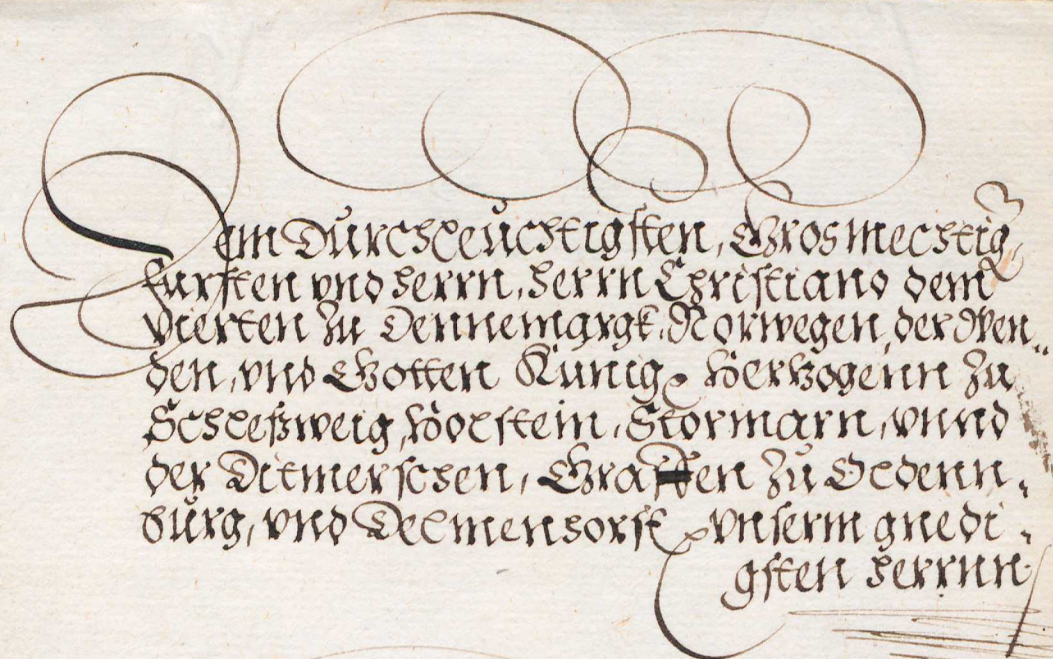 Dem Durchleuchtigsten, Grosmechtig
fursten vnd herrn, herrn Christiano dem
Vierten zu Dennemargk, Norwegen, der Wen„
den, vnd Gotten Künig, Hertzogenn zu
Schleßweig, Holstein, Stormarn, vnnd
der Ditmerschen, Graffen zu Oldenn„
burg, vnd Delmenhorst, vnserm gnedi„
gsten herrnn